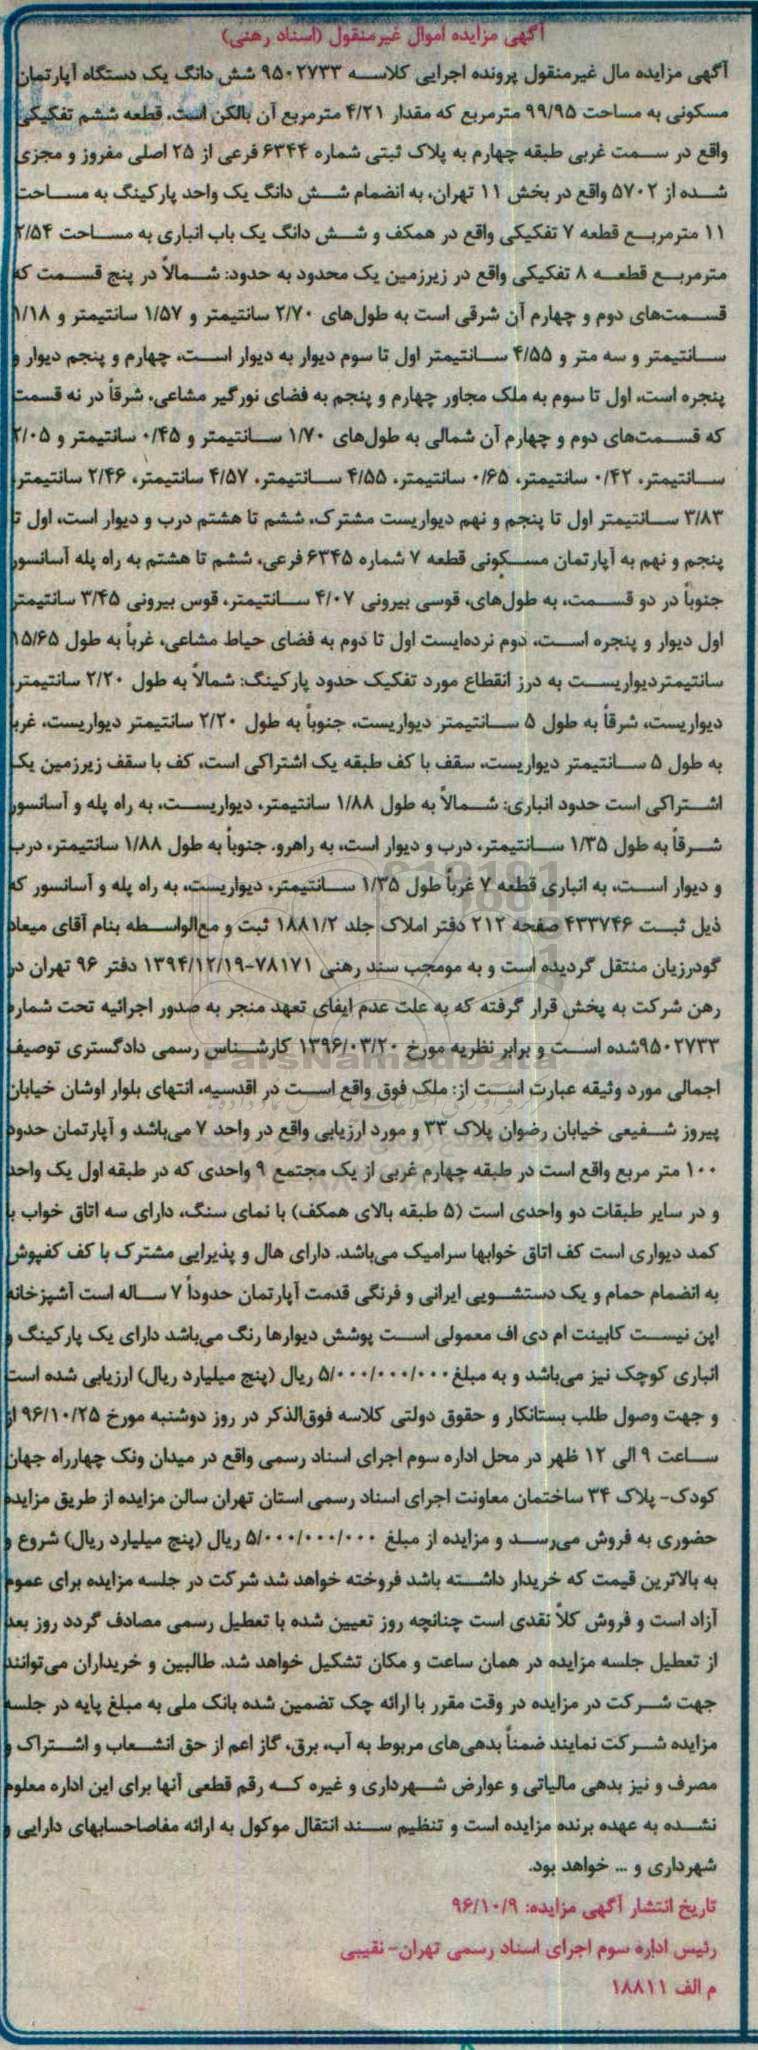 آگهی مزایده اموال غیرمنقول (اسناد رهنی)
آگهی مزایده مال غیرمنقول پرونده اجرایی کلاسه ۹۵۰۲۷۳۳ شش دانگ یک دستگاه آپارتمان
مسکونی به مساحت ۹۹/۹۵ مترمربع که مقدار ۴/۲۱ مترمربع آن بالکن است. قطعه ششم تفکیکی
واقع در سمت غربی طبقه چهارم به پلاک ثبتی شماره ۶۳۴۴ فرعی از ۲۵ اصلی مفروز و مجزی
شده از ۵۷۰۲ واقع در بخش ۱۱ تهران، به انضمام شش دانگ یک واحد پارکینگ به مساحت
۱۱ مترمربع قطعه ۷ تفکیکی واقع در همکف و شش دانگ یک باب انباری به مساحت ۲/۵۴
مترمربع قطعه ۸ تفکیکی واقع در زیرزمین یک محدود به حدود: شمالاً در پنج قسمت که
قسمت‌های دوم و چهارم آن شرقی است به طول‌های ۲/۷۰ سانتیمتر و ۱/۵۷ سانتیمتر و ۱/۱۸
سانتیمتر و سه متر و ۴/۵۵ سانتیمتر اول تا سوم دیوار به دیوار است، چهارم و پنجم دیوار و
پنجره است، اول تا سوم به ملک مجاور چهارم و پنجم به فضای نورگیر مشاعی، شرقاً در نه قسمت
که قسمت‌های دوم و چهارم آن شمالی به طول‌های ۱/۷۰ سانتیمتر و ۰/۴۵ سانتیمتر و ۲/۰۵
سانتیمتر، ۰/۴۲ سانتیمتر، ۰/۶۵ سانتیمتر، ۴/۵۵ سانتیمتر، ۴/۵۷ سانتیمتر، ۲/۴۶ سانتیمتر،
۳/۸۳ سانتیمتر اول تا پنجم و نهم دیواریست مشترک، ششم تا هشتم درب و دیوار است، اول تا
پنجم و نهم به آپارتمان مسکونی قطعه ۷ شماره ۶۳۴۵ فرعی، ششم تا هشتم به راه پله آسانسور
جنوباً در دو قسمت، به طول‌های، قوسی بیرونی ۴/۰۷ سانتیمتر، قوس بیرونی ۳/۴۵ سانتیمتر
اول دیوار و پنجره است، دوم نرده‌ایست اول تا دوم به فضای حیاط مشاعی، غرباً به طول ۱۵/۶۵
سانتیمتردیواریست به درز انقطاع مورد تفکیک حدود پارکینگ: شمالاً به طول ۲/۲۰ سانتیمتر،
دیواریست، شرقاً به طول ۵ سانتیمتر دیواریست، جنوباً به طول ۲/۲۰ سانتیمتر دیواریست، غربا
به طول ۵ سانتیمتر دیواریست، سقف با کف طبقه یک اشتراکی است، کف با سقف زیرزمین یک
اشتراکی است حدود انباری: شمالاً به طول ۱/۸۸ سانتیمتر، دیواریست، به راه پله و آسانسور
شرقاً به طول ۱/۳۵ سانتیمتر، درب و دیوار است، به راهرو. جنوباً به طول ۱/۸۸ سانتیمتر، درب
و دیوار است، به انباری قطعه ۷ غرباً طول ۱/۳۵ سانتیمتر، دیواریست، به راه پله و آسانسور که
ذیل ثبت ۴۳۳۷۴۶ صفحه ۲۱۲ دفتر املاک جلد ۱۸۸۱/۲ ثبت و مع‌الواسطه بنام آقای میعاد
گودرزیان منتقل گردیده است و به مومجب سند رهنی ۷۸۱۷۱-۱۳۹۴/۱۲/۱۹ دفتر ۹۶ تهران در
رهن شرکت به پخش قرار گرفته که به علت عدم ایفای تعهد منجر به صدور اجرائیه تحت شماره
۹۵۰۲۷۳۳شده است و برابر نظریه مورخ ۱۳۹۶/۰۳/۲۰ کارشناس رسمی دادگستری توصیف
اجمالی مورد وثیقه عبارت است از: ملک فوق واقع است در اقدسیه، انتهای بلوار اوشان خیابان
پیروز شفیعی خیابان رضوان پلاک ۳۳ و مورد ارزیابی واقع در واحد ۷ می‌باشد و آپارتمان حدود
۱۰۰ متر مربع واقع است در طبقه چهارم غربی از یک مجتمع ۹ واحدی که در طبقه اول یک واحد
و در سایر طبقات دو واحدی است (۵ طبقه بالای همکف) با نمای سنگ، دارای سه اتاق خواب با
کمد دیواری است کف اتاق خوابها سرامیک می‌باشد. دارای هال و پذیرایی مشترک با کف کفپوش
به انضمام حمام و یک دستشویی ایرانی و فرنگی قدمت آپارتمان حدوداً ۷ ساله است آشپزخانه
اپن نیست کابینت ام دی اف معمولی است پوشش دیوارها رنگ می‌باشد دارای یک پارکینگ و
انباری کوچک نیز می‌باشد و به مبلغ ۵/۰۰۰/۰۰۰/۰۰۰ ریال (پنج میلیارد ریال) ارزیابی شده است
و جهت وصول طلب بستانکار و حقوق دولتی کلاسه فوق‌الذکر در روز دوشنبه مورخ ۹۶/۱۰/۲۵ از
ساعت ۹ الی ۱۲ ظهر در محل اداره سوم اجرای اسناد رسمی واقع در میدان ونک چهارراه جهان
کودک- پلاک ۳۴ ساختمان معاونت اجرای اسناد رسمی استان تهران سالن مزایده از طریق مزایده
حضوری به فروش می‌رسد و مزایده از مبلغ ۵/۰۰۰/۰۰۰/۰۰۰ ریال (پنج میلیارد ریال) شروع و
به بالاترین قیمت که خریدار داشته باشد فروخته خواهد شد شرکت در جلسه مزایده برای عموم
آزاد است و فروش کلاً نقدی است چنانچه روز تعیین شده با تعطیل رسمی مصادف گردد روز بعد
از تعطیل جلسه مزایده در همان ساعت و مکان تشکیل خواهد شد. طالبین و خریداران می‌توانند
جهت شرکت در مزایده در وقت مقرر با ارائه چک تضمین شده بانک ملی به مبلغ پایه در جلسه
مزایده شرکت نمایند ضمناً بدهی‌های مربوط به آب، برق، گاز اعم از حق انشعاب و اشتراک و
مصرف و نیز بدهی مالیاتی و عوارض شهرداری و غیره که رقم قطعی آنها برای این اداره معلوم
نشده به عهده برنده مزایده است و تنظیم سند انتقال موکول به ارائه مفاصاحسابهای دارایی و
شهرداری و ... خواهد بود.
تاریخ انتشار آگهی مزایده: ۹۶/۱۰/۹
رئیس اداره سوم اجرای اسناد رسمی تهران- نقیبی
م الف ۱۸۸۱۱
ParsNamadData